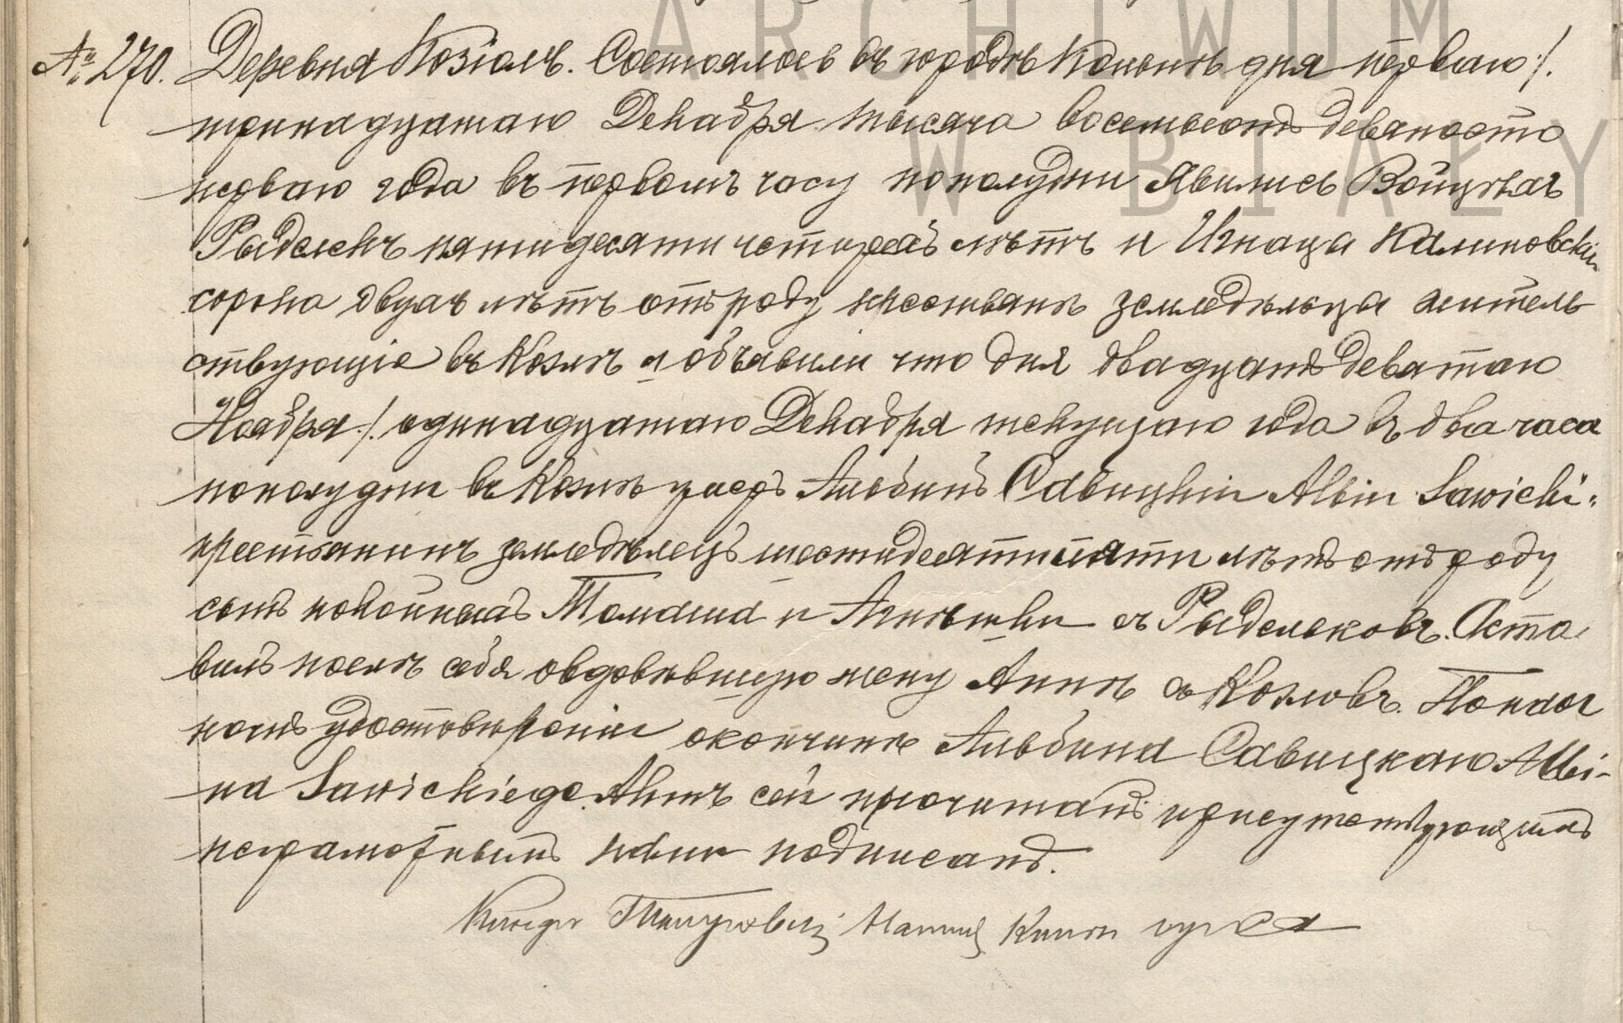 ARCHIWUM
W BIAŁY
№ 270. Деревня Козіолъ. Состоялось въ городѣ Кольнѣ дня перваго /.
тринадцатаго Декабря тысяча восемьсотъ девяносто
перваго года въ первомъ часу пополудни Явились Войцѣхъ
Рыделекъ пятидесяти четырехъ лѣтъ и Игнацы Калиновскій
сорока двухъ лѣтъ отъ роду крестьяне земледѣльцы житель
ствующіе въ Козлѣ и объявили что дня двадцать девятаго
Ноября /. одинадцатаго Декабря текущаго года въ два часа
пополудни въ Козлѣ умеръ Альбинъ Савицкій Albin Sawicki.
крестьянинъ земледѣлецъ шестидесяти пяти лѣтъ отъ роду
сынъ покойныхъ Томаша и Агнѣшки съ Рыделековъ. Оста
вилъ послѣ себя овдовѣвшую жену Аннѣ съ Козловъ. По нагл
номъ удостовѣреніи окончинѣ Альбина Савицкаго Albi-
na Sawickiego. Актъ сей прочитанъ присутствующимъ
неграмотнымъ нами подписанъ.